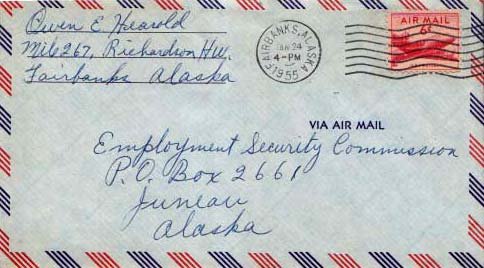 Owen E. Hearold
Mile 267, Richardson HW.
Fairbanks Alaska
FAIRBANKS, ALASKA
JAN 24
4-PM
1955
AIR MAIL
6¢
VIA AIR MAIL
Employment Security Commission
P.O. Box 2661
Juneau
Alaska